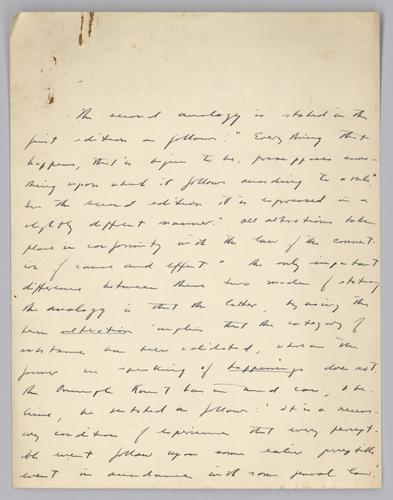 The second analogy is stated in the
first edition as follows: "Every thing that
happens, that is begins to be, presupposes some-
thing upon which it follows according to a rule."
In the second edition it is expressed in a
slightly different manner: "All alterations take
place in conformity with the law of the connect-
ion of cause and effect." The only important
difference between these two modes of stating
the analogy is that the latter, by using the
term alteration implies that the category of
substance has been validated, whereas the
former in speaking of happenings does not.
The Principle Kant has in mind can, I be-
lieve, be restated as follows: It is a necess-
ary condition of experience that every percept-
ible event follow upon some earlier perceptible
event in accordance with some causal law.